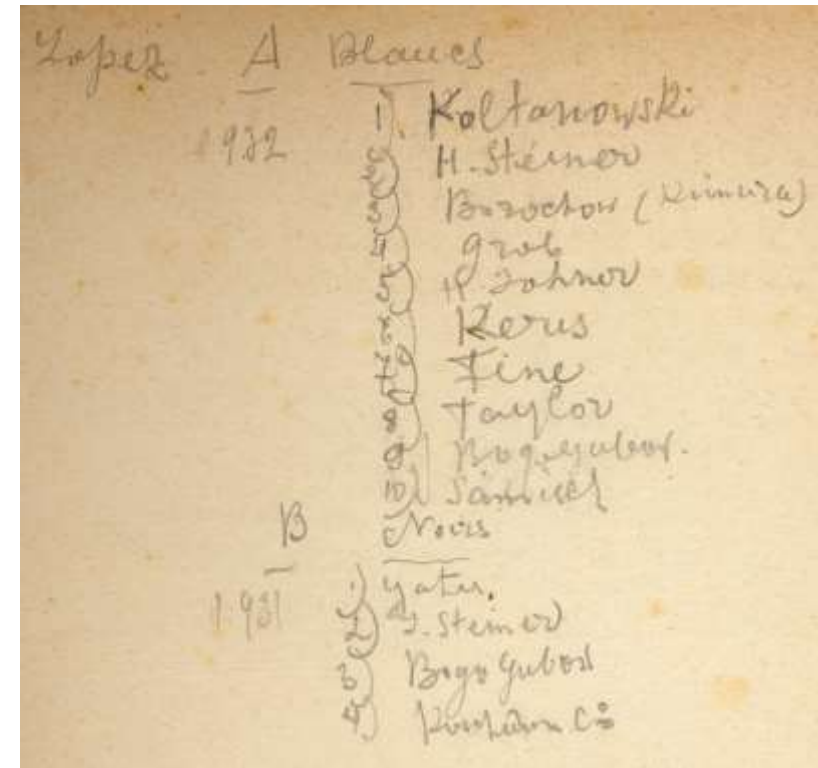 Lopez. A Blancs
1932
1) Koltanowski
2) H. Steiner
3) Borochow (Kimura)
4) Grob
5) P. Johner
6) Kerus
7) Fine
8) Taylor
9) Bogoljubov.
10) Sämisch
B Noirs
1931
1) Yates.
2) L. Steiner
3) Bogoljubov
4) &Cº